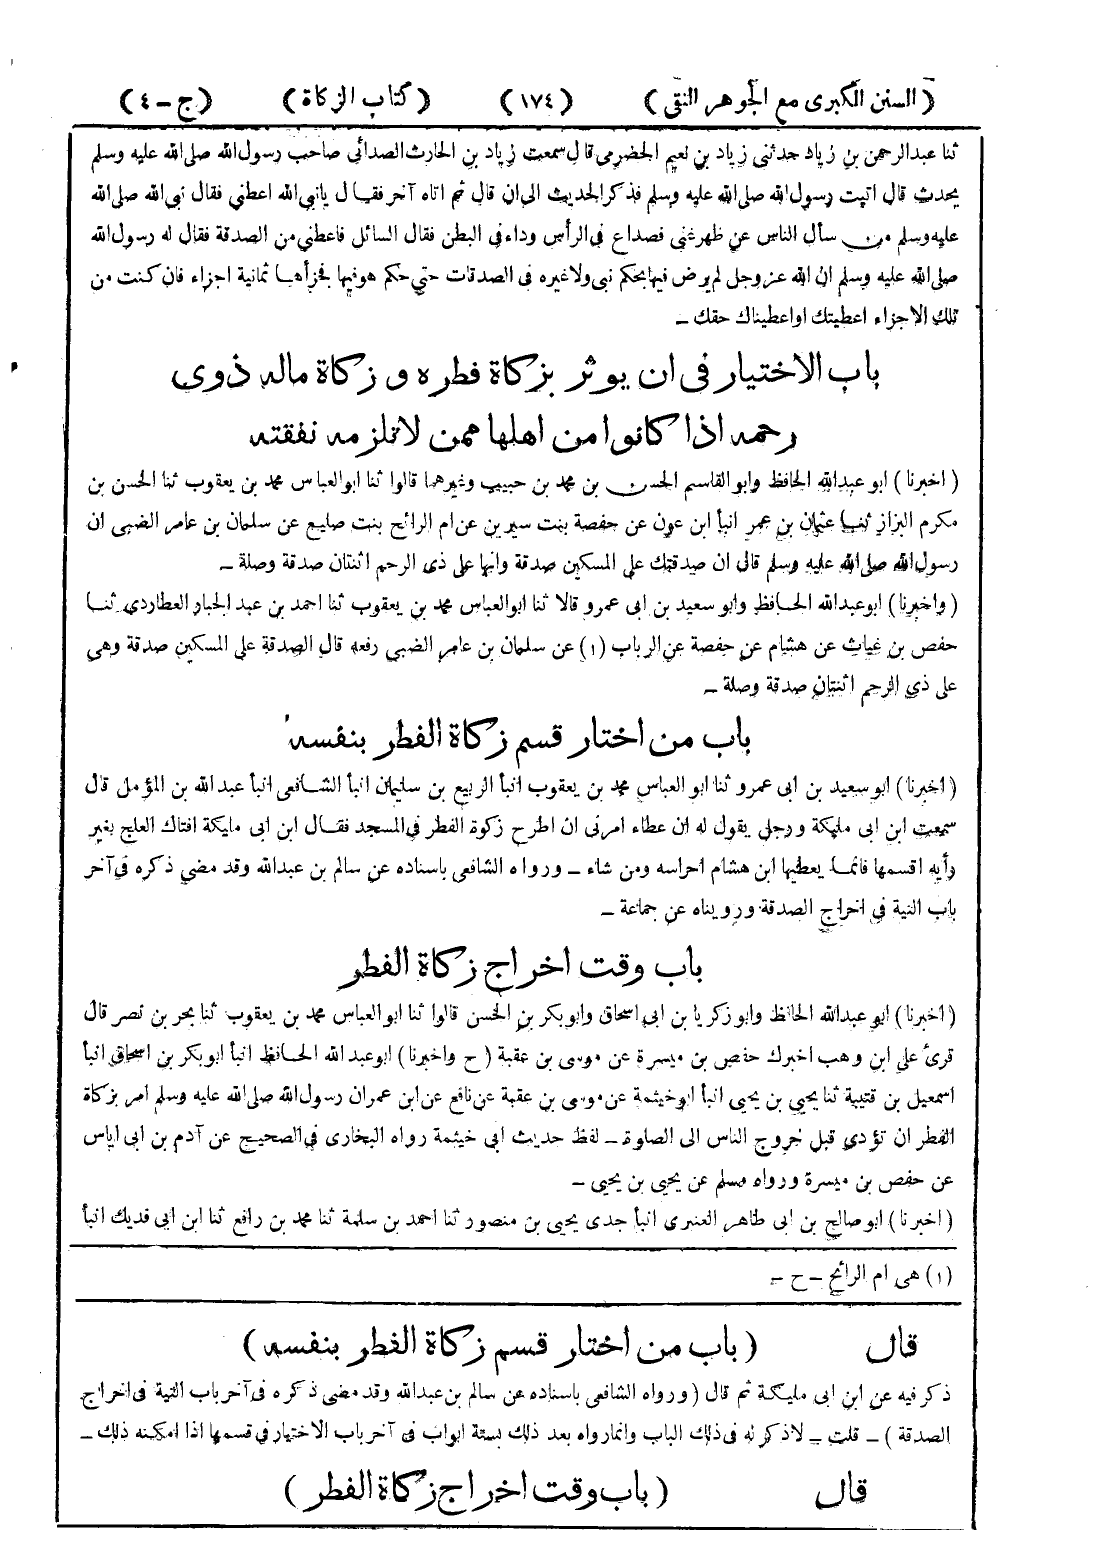 (السنن الكبرى مع الجوهر النقى) (١٧٤) (كتاب الزكاة) (ج - ٤)
ثنا عبدالرحمن بن زياد حدثنى زياد بن نعيم الحضرمى قال سمعت زياد بن الحارث الصدائى صاحب رسول الله صلى الله عليه وسلم
يحدث قال اتيت رسول الله صلى الله عليه وسلم فذكر الحديث الى ان قال ثم اتاه آخر فقال يا نبي الله اعطني فقال نبي الله صلى الله
عليه وسلم من سأل الناس عن ظهر غنى فصداع فى الرأس وداء فى البطن فقال السائل فاعطني من الصدقة فقال له رسول الله
صلى الله عليه وسلم ان الله عز وجل لم يرض فيها بحكم نبى ولا غيره فى الصدقات حتى حكم هو فيها فجزأها ثمانية اجزاء فان كنت من
تلك الاجزاء اعطيتك او اعطيناك حقك -
باب الاختيار فى ان يوثر بزكاة فطره و زكاة ماله ذوى
رحمه اذا كانوا من اهلها ممن لا تلزمه نفقته
(اخبرنا) ابو عبدالله الحافظ وابو القاسم الحسن بن محمد بن حبيب وغيرهما قالوا ثنا ابو العباس محمد بن يعقوب ثنا الحسن بن
مكرم البزاز ثنا عثمان بن عمر انبأ ابن عون عن حفصة بنت سيرين عن ام الرائح بنت صليع عن سلمان بن عامر الضبى ان
رسول الله صلى الله عليه وسلم قال ان صدقتك على المسكين صدقة وانها على ذى الرحم اثنتان صدقة وصلة -
(واخبرنا) ابو عبدالله الحافظ وابو سعيد بن ابى عمرو قالا ثنا ابو العباس محمد بن يعقوب ثنا احمد بن عبد الجبار العطاردي ثنا
حفص بن غياث عن هشام عن حفصة عن الرباب (١) عن سلمان بن عامر الضبي رفعه قال الصدقة على المسكين صدقة وهى
على ذي الرحم اثنتان صدقة وصلة -
باب من اختار قسم زكاة الفطر بنفسه
(اخبرنا) ابو سعيد بن ابى عمرو ثنا ابو العباس محمد بن يعقوب انبأ الربيع بن سليمان انبأ الشافعى انبأ عبد الله بن المؤمل قال
سمعت ابن ابى مليكة ورجل يقول له ان عطاء امرنى ان اطرح زكوة الفطر فى المسجد فقال ابن ابى مليكة افتاك العلج بغير
رأيه اقسمها فانما يعطيها ابن هشام احراسه ومن شاء - ورواه الشافعى باسناده عن سالم بن عبدالله وقد مضى ذكره فى آخر
باب النية فى اخراج الصدقة ورويناه عن جماعة -
باب وقت اخراج زكاة الفطر
(اخبرنا) ابو عبدالله الحافظ وابو زكريا بن ابى اسحاق وابو بكر بن الحسن قالوا ثنا ابو العباس محمد بن يعقوب ثنا بحر بن نصر قال
قرئ على ابن وهب اخبرك حفص بن ميسرة عن موسى بن عقبة (ح واخبرنا) ابو عبد الله الحافظ انبأ ابو بكر بن اسحاق انبأ
اسمعيل بن قتيبة ثنا يحيى بن يحيى انبأ ابو خيثمة عن موسى بن عقبة عن نافع عن ابن عمر ان رسول الله صلى الله عليه وسلم امر بزكاة
الفطر ان تؤدى قبل خروج الناس الى الصلوة - لفظ حديث ابى خيثمة رواه البخارى فى الصحيح عن آدم بن ابى اياس
عن حفص بن ميسرة ورواه مسلم عن يحيى بن يحيى -
(اخبرنا) ابو صالح بن ابى طاهر العنبرى انبأ جدى يحيى بن منصور ثنا احمد بن سلمة ثنا محمد بن رافع ثنا ابن ابى فديك انبأ
(١) هى ام الرائح - ح -
قال (باب من اختار قسم زكاة الفطر بنفسه)
ذكر فيه عن ابن ابى مليكة ثم قال (ورواه الشافعى باسناده عن سالم بن عبدالله وقد مضى ذكره فى آخر باب النية فى اخراج
الصدقة) - قلت - لا ذكر له فى ذلك الباب وانما رواه بعد ذلك بستة ابواب فى آخر باب الاختيار فى قسمها اذا امكنه ذلك -
قال (باب وقت اخراج زكاة الفطر)